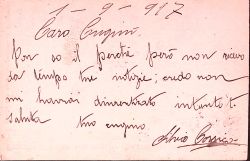 1-9-917
Caro Cugino
Non so il perché però non ricevo
da tempo tue notizie; credo non
mi havrai dimenticato intanto ti
saluta tuo cugino
Silvio